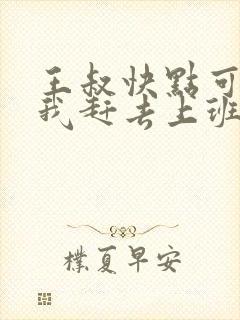 王叔快點可
我赶去上班
樸夏早安